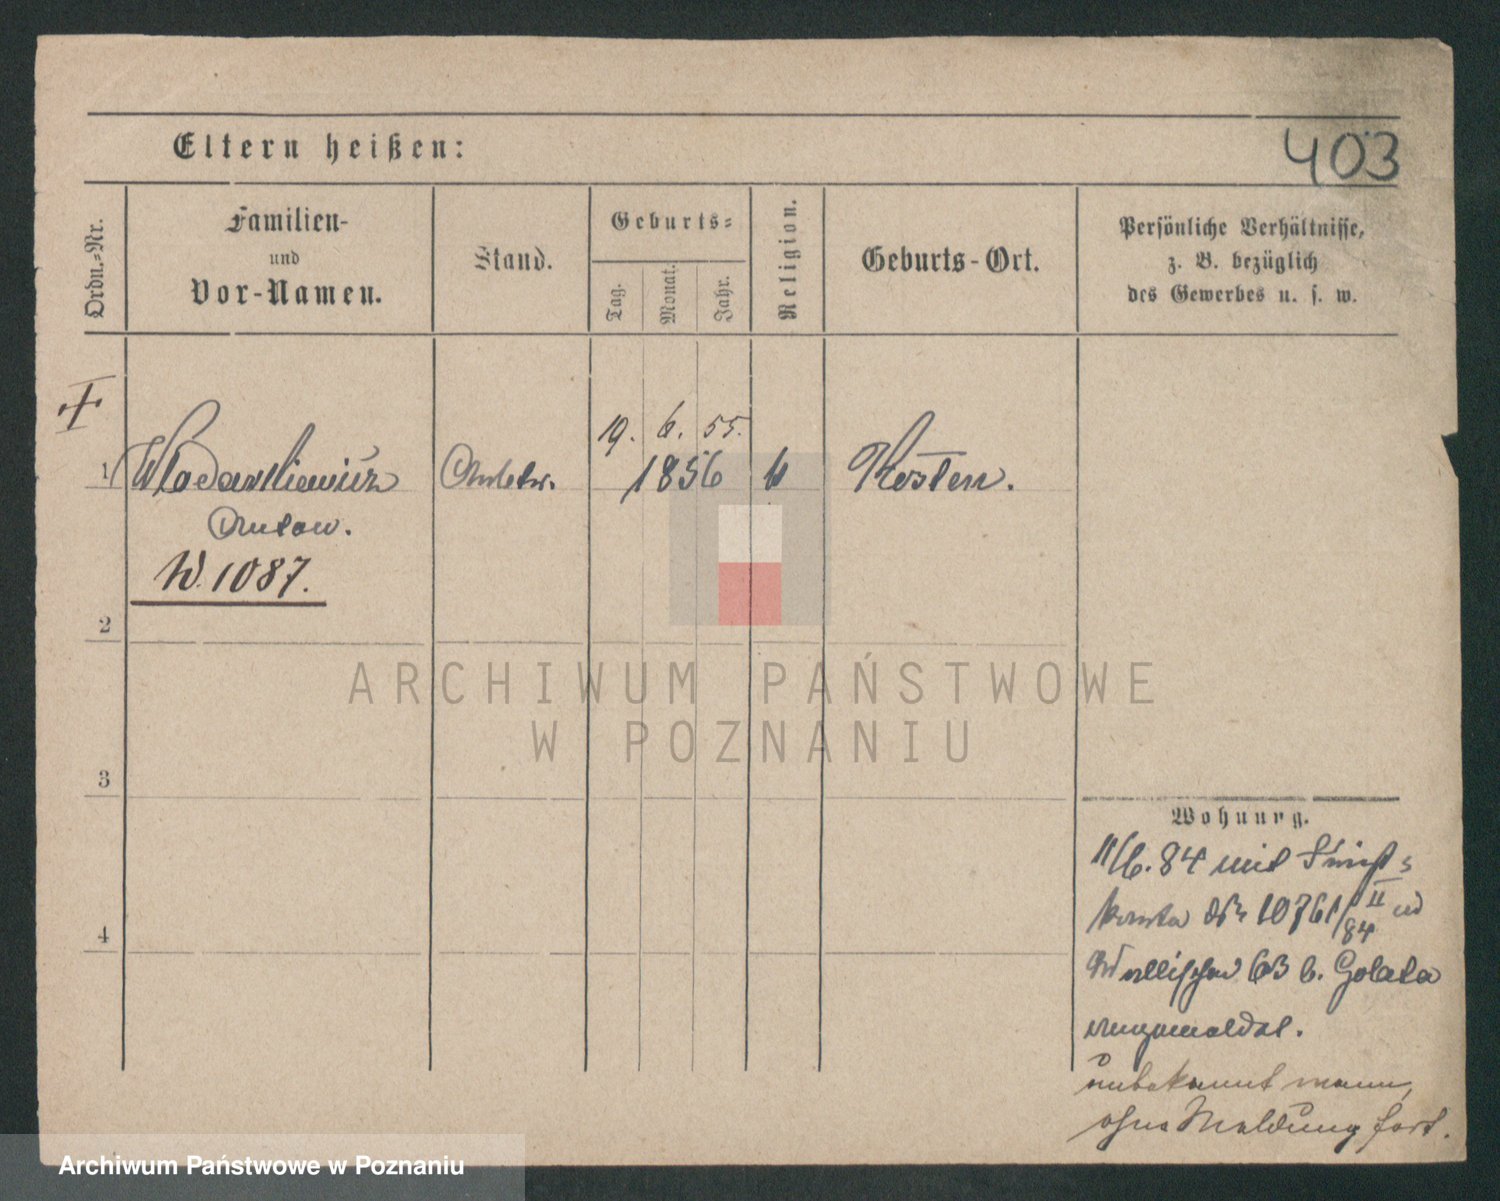 403
Eltern heißen:
Ordn.-Nr.
Familien-
und
Vor-Namen.
Stand.
Geburts-
Tag.
Monat.
Jahr.
Religion.
Geburts-Ort.
Persönliche Verhältnisse,
z. B. bezüglich
des Gewerbes u. s. w.
19. 6. 55.
1
1856
k
Kosten.
Anton.
W. 1087.
2
ARCHIWUM PAŃSTWOWE
W POZNANIU
3
Wohnung.
11/6. 84 mit
10761/II 84
4
Wallischei 63 b. Golata
angemeldet.
unbekannt wann,
ohne Meldung fort.
Archiwum Państwowe w Poznaniu